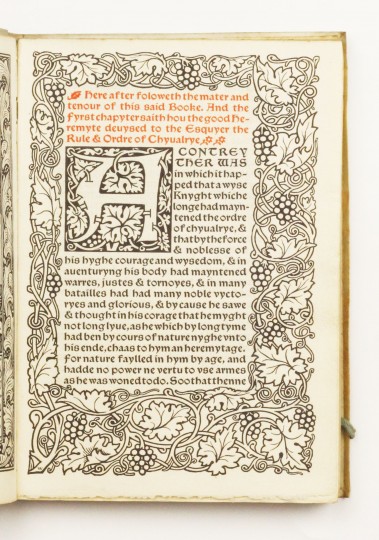 Here after foloweth the mater and
tenour of this said Booke. And the
fyrst chapyter saith hou the good He-
remyte deuysed to the Esquyer the
Rule & Ordre of Chyualrye
A CONTREY
THER WAS
in which it hap-
ped that a wyse
Knyght which
longe had mayn-
tened the ordre
of chyualrye, &
that by the force
& noblesse of
his hyghe courage and wysedom, & in
auenturyng his body had mayntened
warres, justes & tornoyes, & in many
batailles had had many noble vycto-
ryes and glorious, & by cause he sawe
& thought in his corage that he myght
not long lyue, as he which by long tyme
had ben by cours of nature nyghe vnto
his ende, chaas to hym an heremytage.
For nature faylled in hym by age, and
hadde no power ne vertu to vse armes
as he was woned to do. Soo that thenne